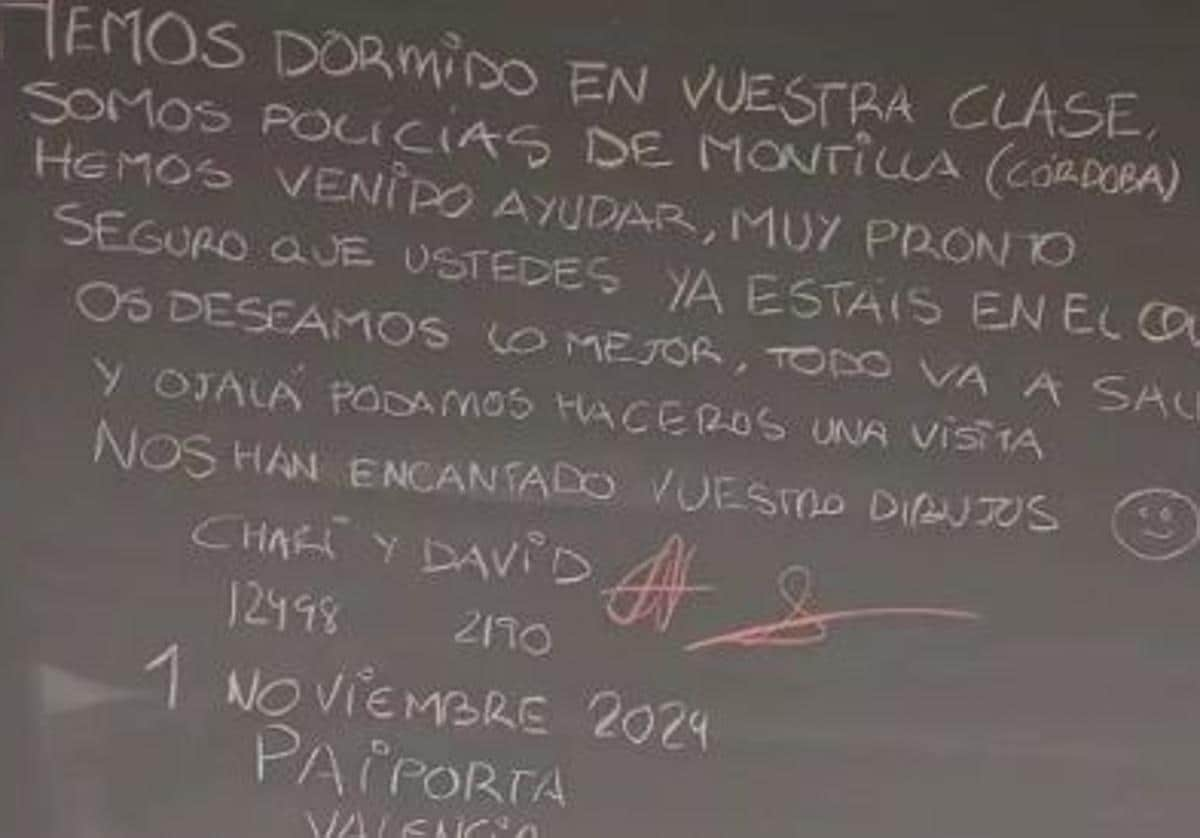 HEMOS DORMIDO EN VUESTRA CLASE,
SOMOS POLICÍAS DE MONTILLA (CÓRDOBA)
HEMOS VENIDO AYUDAR, MUY PRONTO
SEGURO QUE USTEDES YA ESTÁIS EN EL
OS DESEAMOS LO MEJOR, TODO VA A
Y OJALÁ PODAMOS HACEROS UNA VISITA
NOS HAN ENCANTADO VUESTRO DIBUJOS
CHARI Y DAVID
12498 2190
1 NOVIEMBRE 2024
PAIPORTA
VALENCIA